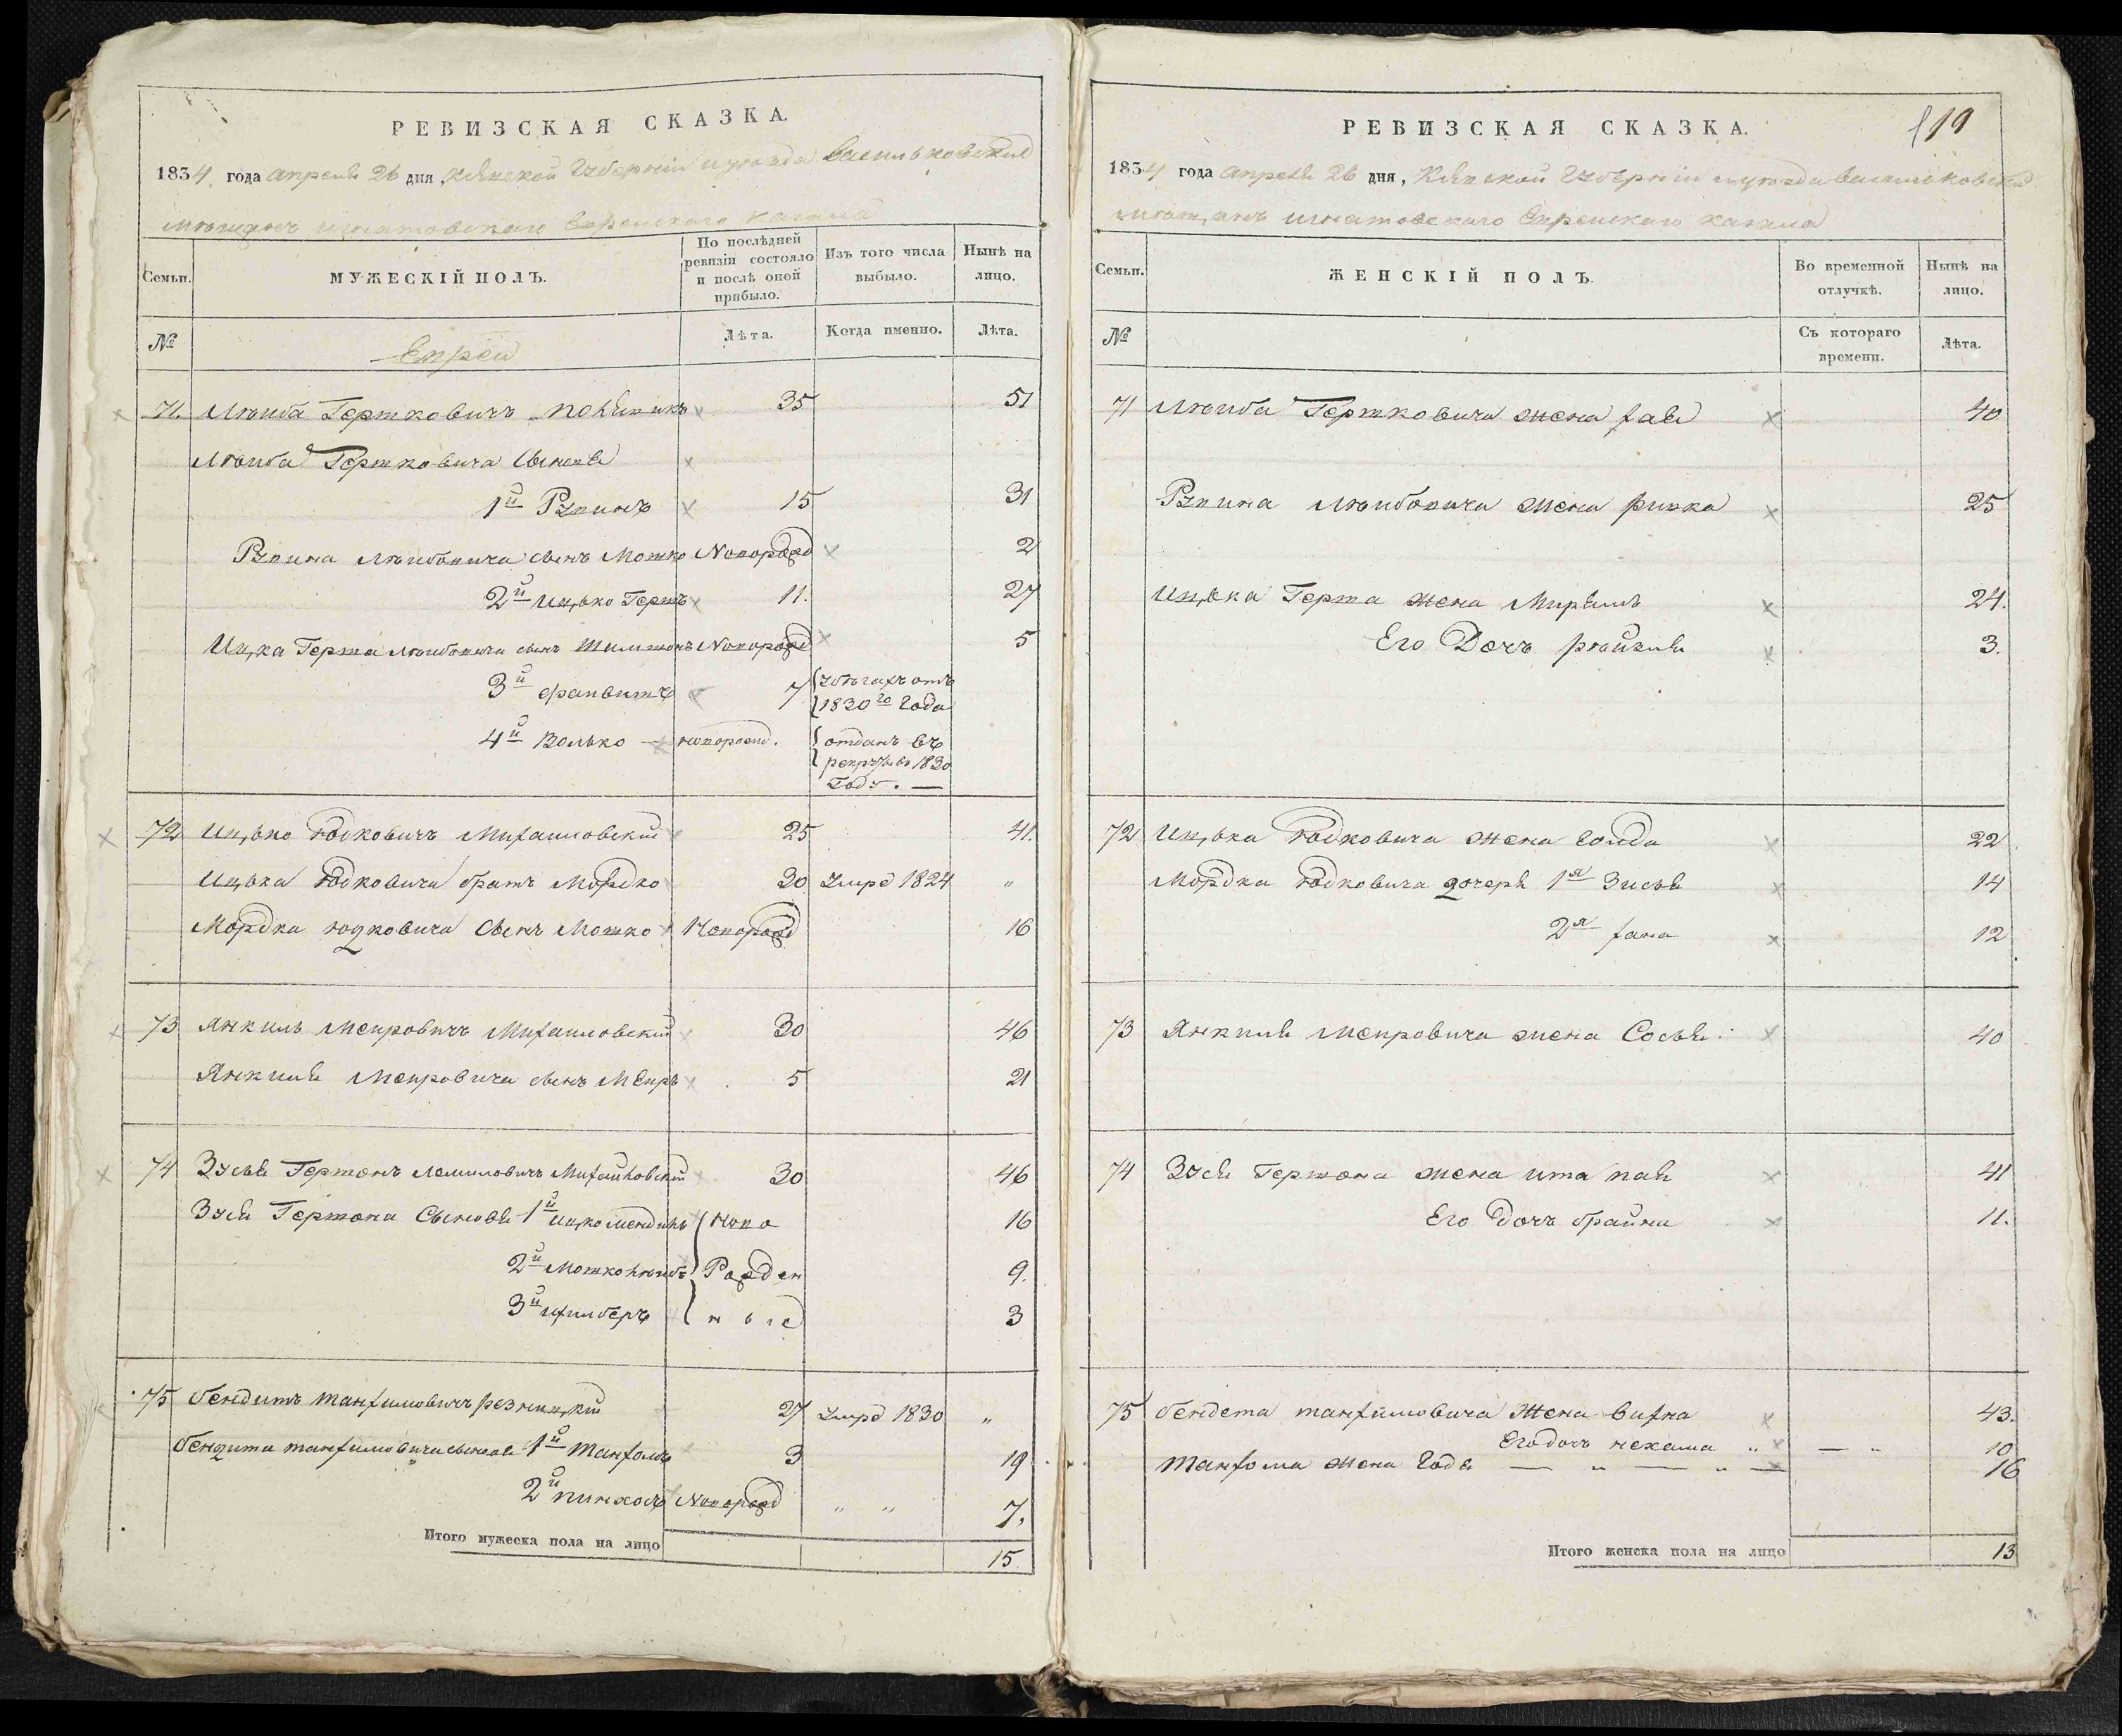 РЕВИЗСКАЯ СКАЗКА.
1834 года апреля 26 дня, Кіевской Губерніи и уезда Васильковскаго
мещанъ Игнатовскаго Еврейскаго кагала
Семьи.
МУЖЕСКІЙ ПОЛЪ.
По послѣдней ревизіи состояло и послѣ оной прибыло.
Изъ того числа выбыло.
Нынѣ на лицо.
№
Евреи
Лѣта.
Когда именно.
Лѣта.
71. Лѣиба Гершковичъ 35 51
Лѣиба Гершковича Сыновья
1й Рувинъ 15 31
Рувина Лѣибовича сынъ Мошко Новорожд 2
2й Ицько Гершъ 11. 27
Ицка Герша Лѣибовича сынъ Шимшонъ Новорожд 5
3й 7 въ бѣгахъ отъ 1830го Года
4й Волько новорожд. отданъ въ рекруты въ 1830 Годѣ. —
72 Ицько Юдковичъ Михайловскій 25 41.
Ицька Юдковича братъ Мордко 30 Умре 1824 „
Мордка Юдковича Сынъ Мошко Новорожд 16
73 Янкиль Меировичъ Михайловскій 30 46
Янкиля Меировича сынъ Меиръ 5 21
74 Зусья Гершонъ Михайловскій 30 46
Зуся Гершона Сыновья 1й Ицко Мендиль Ново 16
2й Мошко Лѣибъ Рожден 9.
3й ные 3
75 Бендитъ Танхумовичъ Резницкій 27 Умре 1830 „
Бендита Танхумовича сыновья 1й Танхомъ 3 19
2й Пинхосъ Новорожд „ „ 7.
Итого мужеска пола на лицо 15
РЕВИЗСКАЯ СКАЗКА. 119
1834 года апреля 26 дня, Кіевской Губерніи и уезда Васильковскаго
мещанъ Игнатовскаго Еврейскаго кагала
Семьи.
ЖЕНСКІЙ ПОЛЪ.
Во временной отлучкѣ.
Нынѣ на лицо.
№
Съ котораго времени.
Лѣта.
71 Лѣиба Гершковича жена Хая 40
Рувина Лѣибовича жена Ривка 25
Ицька Герша жена Мирьямъ 24.
Его Дочъ Рѣйзля 3.
72 Ицька Юдковича жена Голда 22
Мордка Юдковича дочери 1я Зисья 14
2я Хана 12
73 Янкиля Меировича жена Сосья 40
74 Зуся Гершона жена Ита 41
Его Дочъ Брайна 11.
75 Бендета Танхумовича Жена Вихна 43.
Его дочь Нехама „ — „ 10
Танхома жена Годя — „ — „ — 16
Итого женска пола на лицо 13